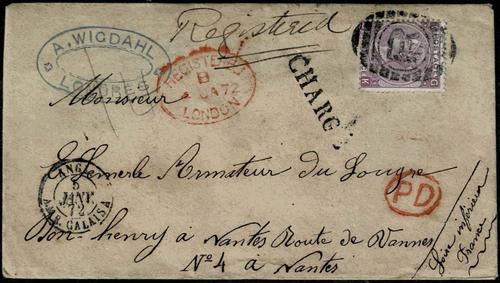 A. WIGDAHL
LONDRES
Registered
REGISTERED
B
JA 72
LONDON
CHARGÉ
G
K
Monsieur
E Lemerle Armateur du Lougre
ANGL.
5
JANV.
72
AMB. CALAIS A
PD
Bon-henry à Nantes Route de Vannes
Nº 4 à Nantes
Loire inférieure
France